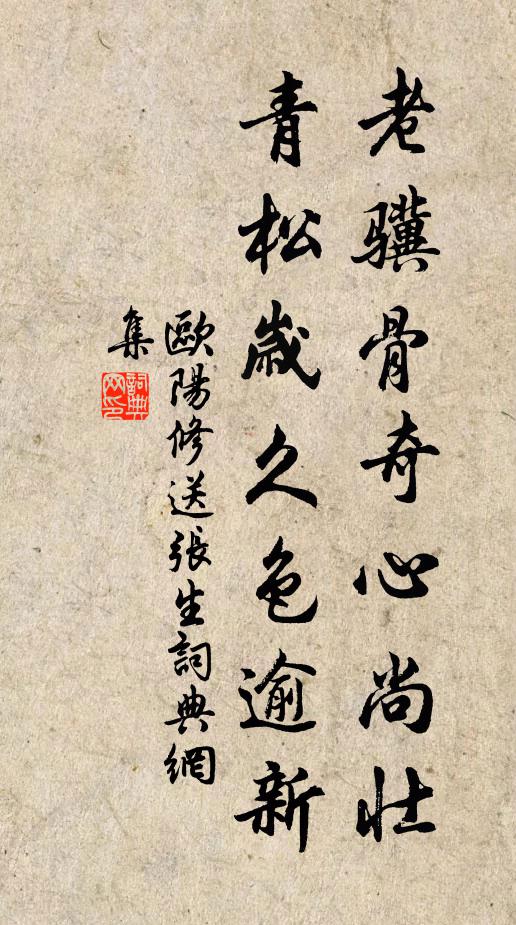 老驥骨奇心尚壯
青松歲久色逾新
歐陽修送張生詞典網
集
詞典
网印